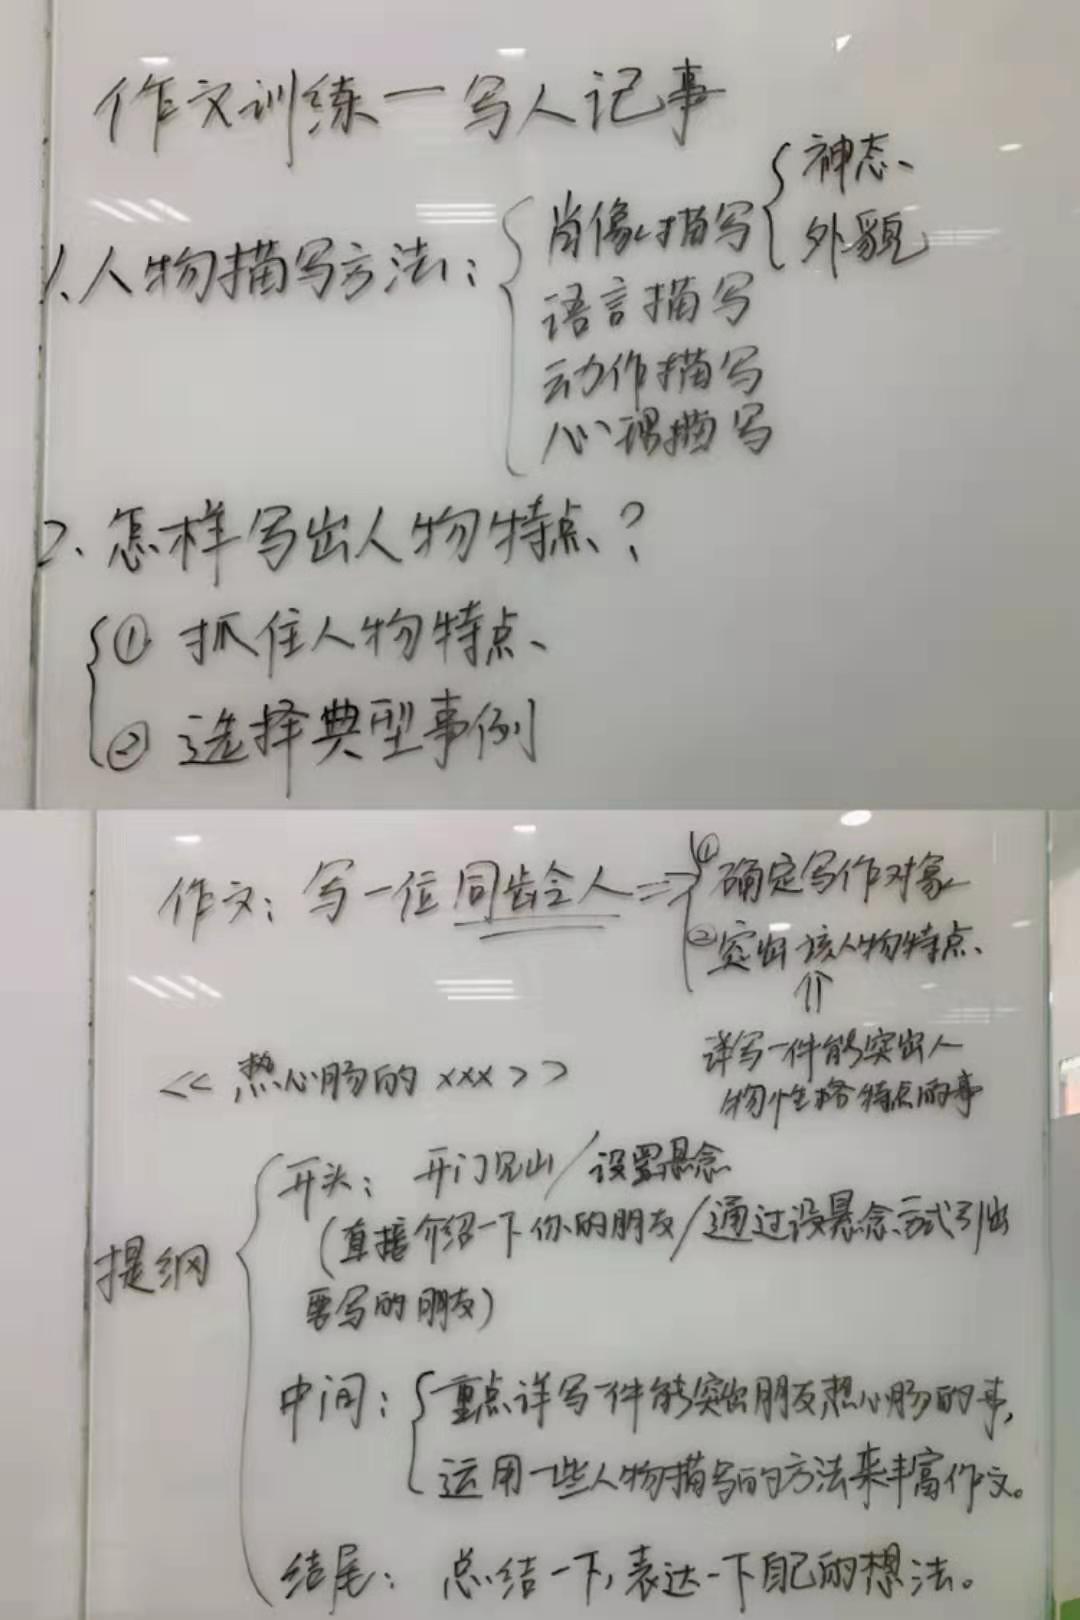 作文训练一写人记事
神态、
1.人物描写方法: 肖像描写 外貌
语言描写
动作描写
心理描写
2.怎样写出人物特点?
①抓住人物特点、
②选择典型事例
作文:写一位同龄人⇒ ①确定写作对象
②突出该人物特点、
⇑
详写一件能突出人
物性格特点的事
<<热心肠的xxx>>
提纲
开头: 开门见山/设置悬念
(直接介绍一下你的朋友/通过设悬念方式引出
要写的朋友)
中间: 重点详写一件能突出朋友热心肠的事,
运用一些人物描写的方法来丰富作文。
结尾: 总结一下,表达一下自己的想法。